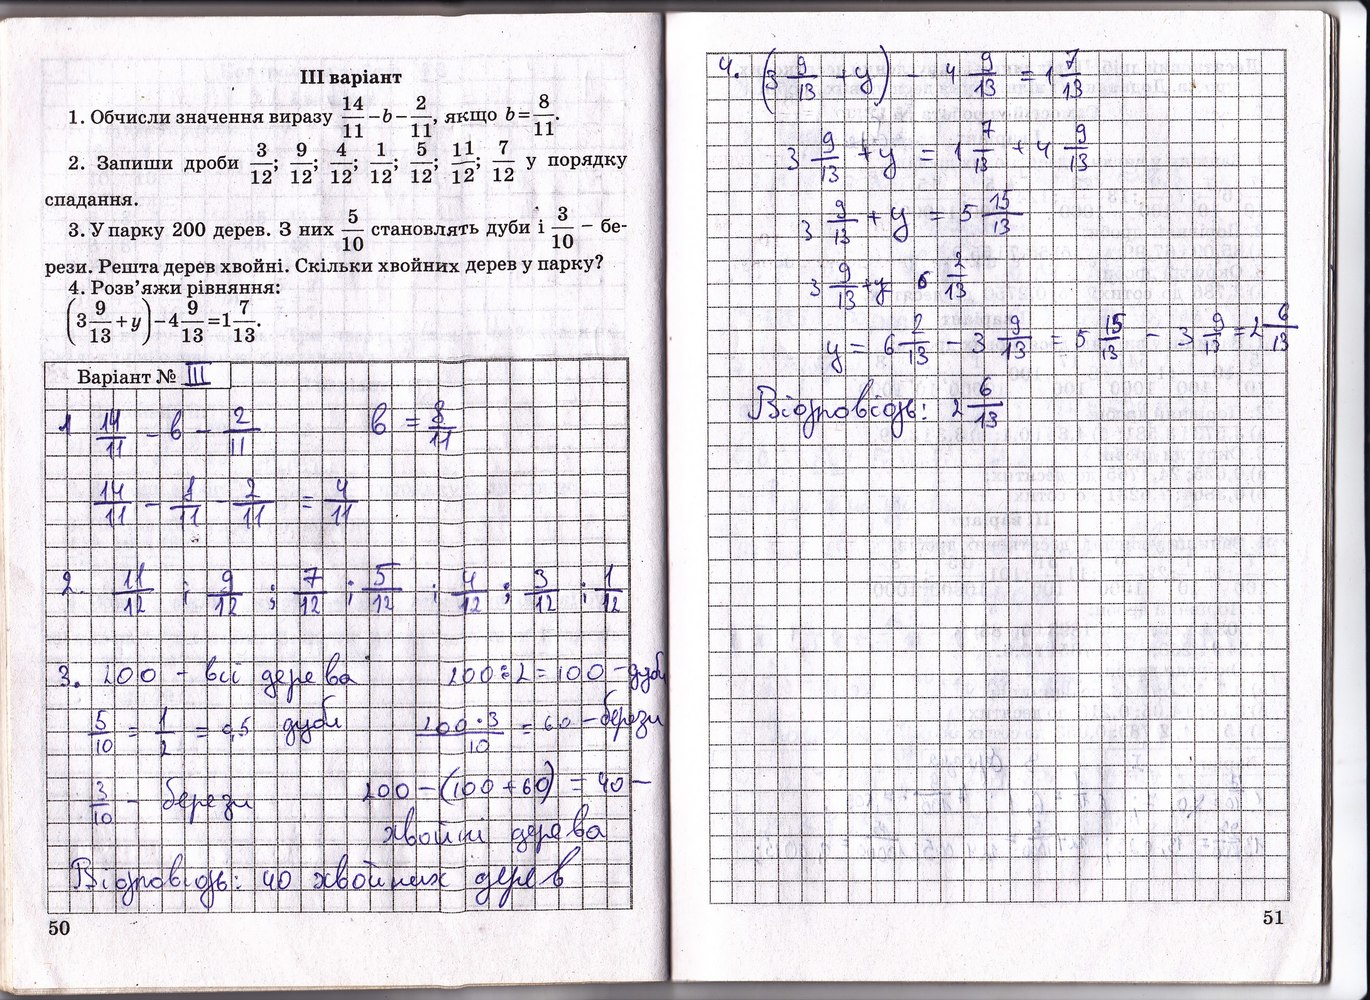 III варіант
1. Обчисли значення виразу 14/11 − b − 2/11, якщо b = 8/11.
2. Запиши дроби 3/12; 9/12; 4/12; 1/12; 5/12; 11/12; 7/12 у порядку
спадання.
3. У парку 200 дерев. З них 5/10 становлять дуби і 3/10 – бе-
рези. Решта дерев хвойні. Скільки хвойних дерев у парку?
4. Розв’яжи рівняння:
(3 9/13 + y) − 4 9/13 = 1 7/13.
Варіант № III
1 14/11 − в − 2/11 в = 8/11
14/11 − 8/11 − 2/11 = 4/11
2. 11/12 ; 9/12 ; 7/12 ; 5/12 ; 4/12 ; 3/12 ; 1/12
3. 200 – всі дерева 200 ÷ 2 = 100 – дуби
5/10 = 1/2 = 0,5 дуби 200·3/10 = 60 – берези
3/10 – берези 200 − (100 + 60) = 40 –
хвойні дерева
Відповідь: 40 хвойних дерев
50
4. (3 9/13 + y) − 4 9/13 = 1 7/13
3 9/13 + y = 1 7/13 + 4 9/13
3 9/13 + y = 5 15/13
3 9/13 + y 6 2/13
y = 6 2/13 − 3 9/13 = 5 15/13 − 3 9/13 = 2 6/13
Відповідь: 2 6/13
51